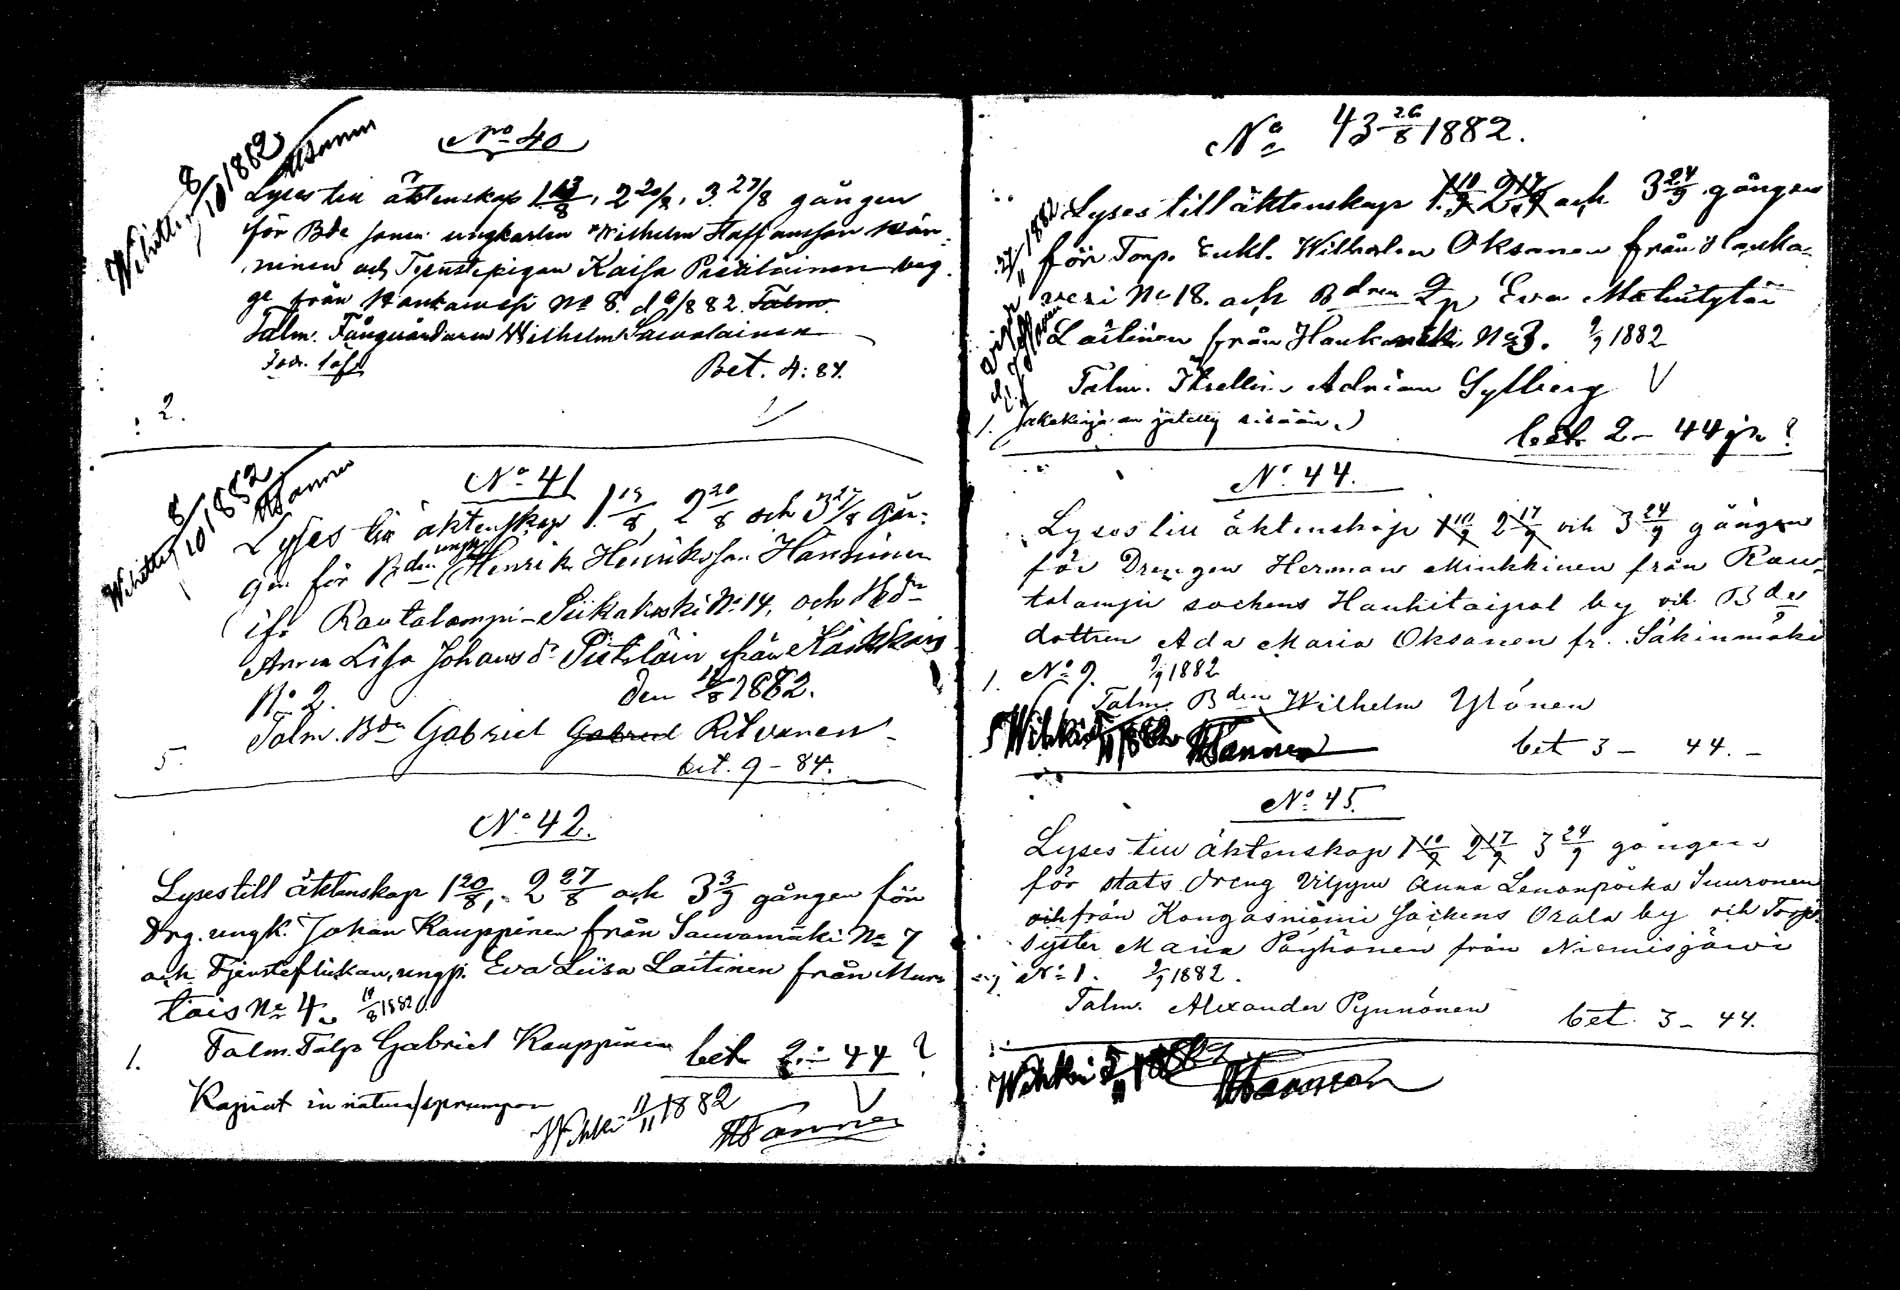 No 40
Wihitty 8/10 1882
Lyses till äktenskap 1 13/8, 2 20/8, 3 27/8 gången
för Bde sonen ungkarlen Wilhelm Staffansson Hän-
ninen och Tjenstepigan Kaisa Pääläinen beg-
ge från Hankamäki No 8. d 6/8 82. Talm.
Talm. Wilhelm Sawolainen
Bet. 4: 84.
2.
No 41
Wihitty 8/10 1882
Lyses till äktenskap 1. 13/8 2 20/8 och 3 27/8 gån-
gen för Bden ungk. Henrik Henriksson Hänninen
ifr Rautalampi - Siikakoski No 14, och Bde
Anna Lisa Johansdr från
No 2. den 12/8 1882.
Talm. Bdn Gabriel Gabriel Ritvanen
5. bet. 9 - 84.
No 42.
Lyses till äktenskap 1 20/8, 2 27/8 och 3 3/9 gången för
Drg. ungk. Johan Kauppinen från Sauvamäki No 7
och Tjensteflickan, ungp. Eva Liisa Laitinen från Mus-
tais No 4. 19/8 1882.
1. Talm. Talp Gabriel Kauppinen
bet 2 - 44 ?
Wihki 12/11 1882 Hannen
No 43 26/8 1882.
Lyses till äktenskap 1. 10/9 2 17/9 och 3 24/9 gången
för Torp. Enkl. Wilhelm Oksanen från Hanka-
vesi No 18. och Bdren Eva
Laitinen från No 3. 9/9 1882
Talm. Adrian Sylberg
1.
bet. 2 - 44 ?
No 44.
Lyses till äktenskap 1 10/9 2 17/9 och 3 24/9 gången
för Drengen Herman Minkkinen från Rau-
talampi sockens Hanhitaipal by och Bde
dottren Ada Maria Oksanen fr. Säkinmäki
1. No 9. 9/9 1882
Talm. Bden Wilhelm Ylönen
Wihki 5/11 1882 Hannen
bet 3 - 44. -
No 45.
Lyses till äktenskap 1 10/9 2 17/9 3 24/9 gången
för stats dreng Anna Suuronen
och från Kangasniemi Sockens Orala by och Torp.
Syster Maria Pöyhönen från Niemisjärwi
No 1. 9/9 1882.
Talm. Alexander Pynnönen
bet. 3 - 44.
Wihki 5/11 1882 Hannen